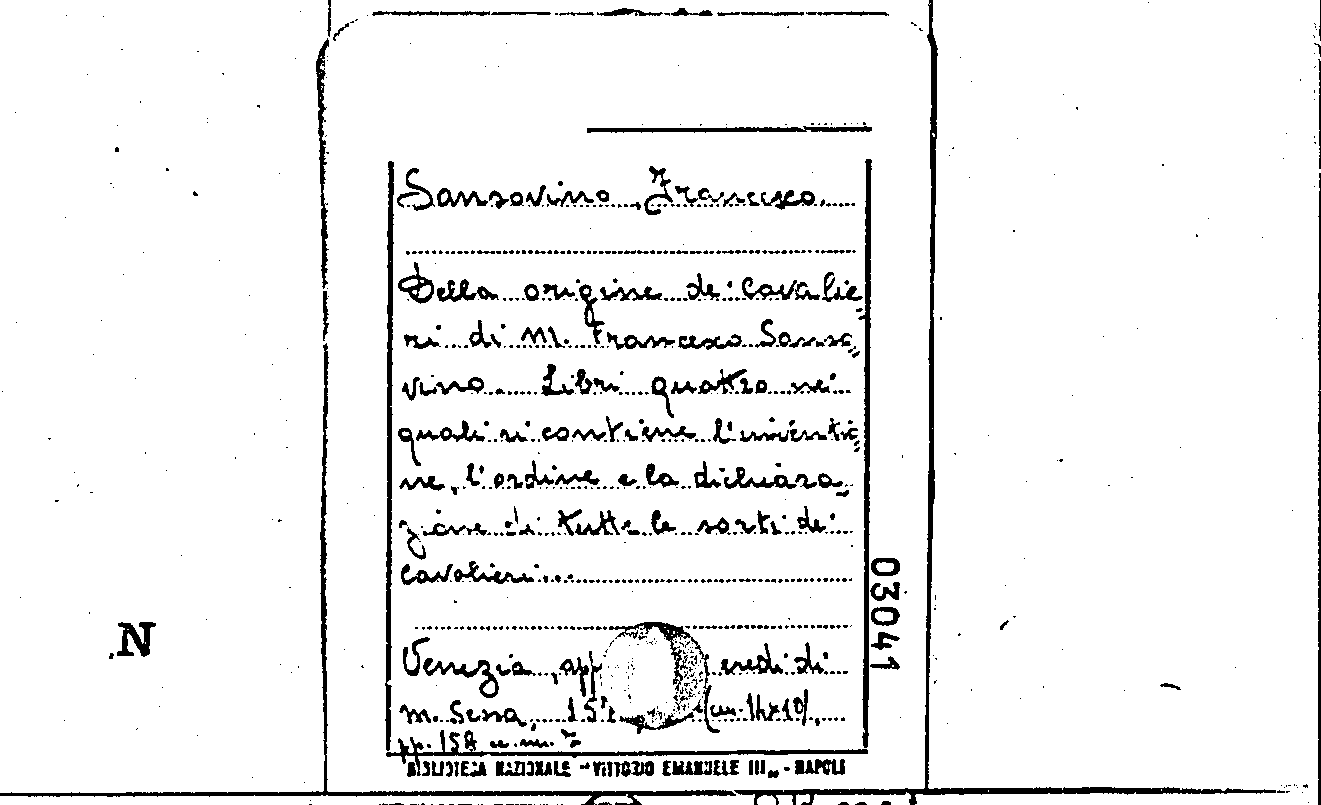 Sansovino, Francesco.
Della origine de' Cavalie=
ri di M. Francesco Sanso=
vino. Libri quattro nei
quali si contiene l'inventio=
ne, l'ordine e la dichiara=
zione di tutte le sorti de'
cavalieri...
Venezia, app eredi di
M. Sessa, 15 (cm. 14x10),
pp. 158
BIBLIOTECA NAZIONALE "VITTORIO EMANUELE III" - NAPOLI
03041
N